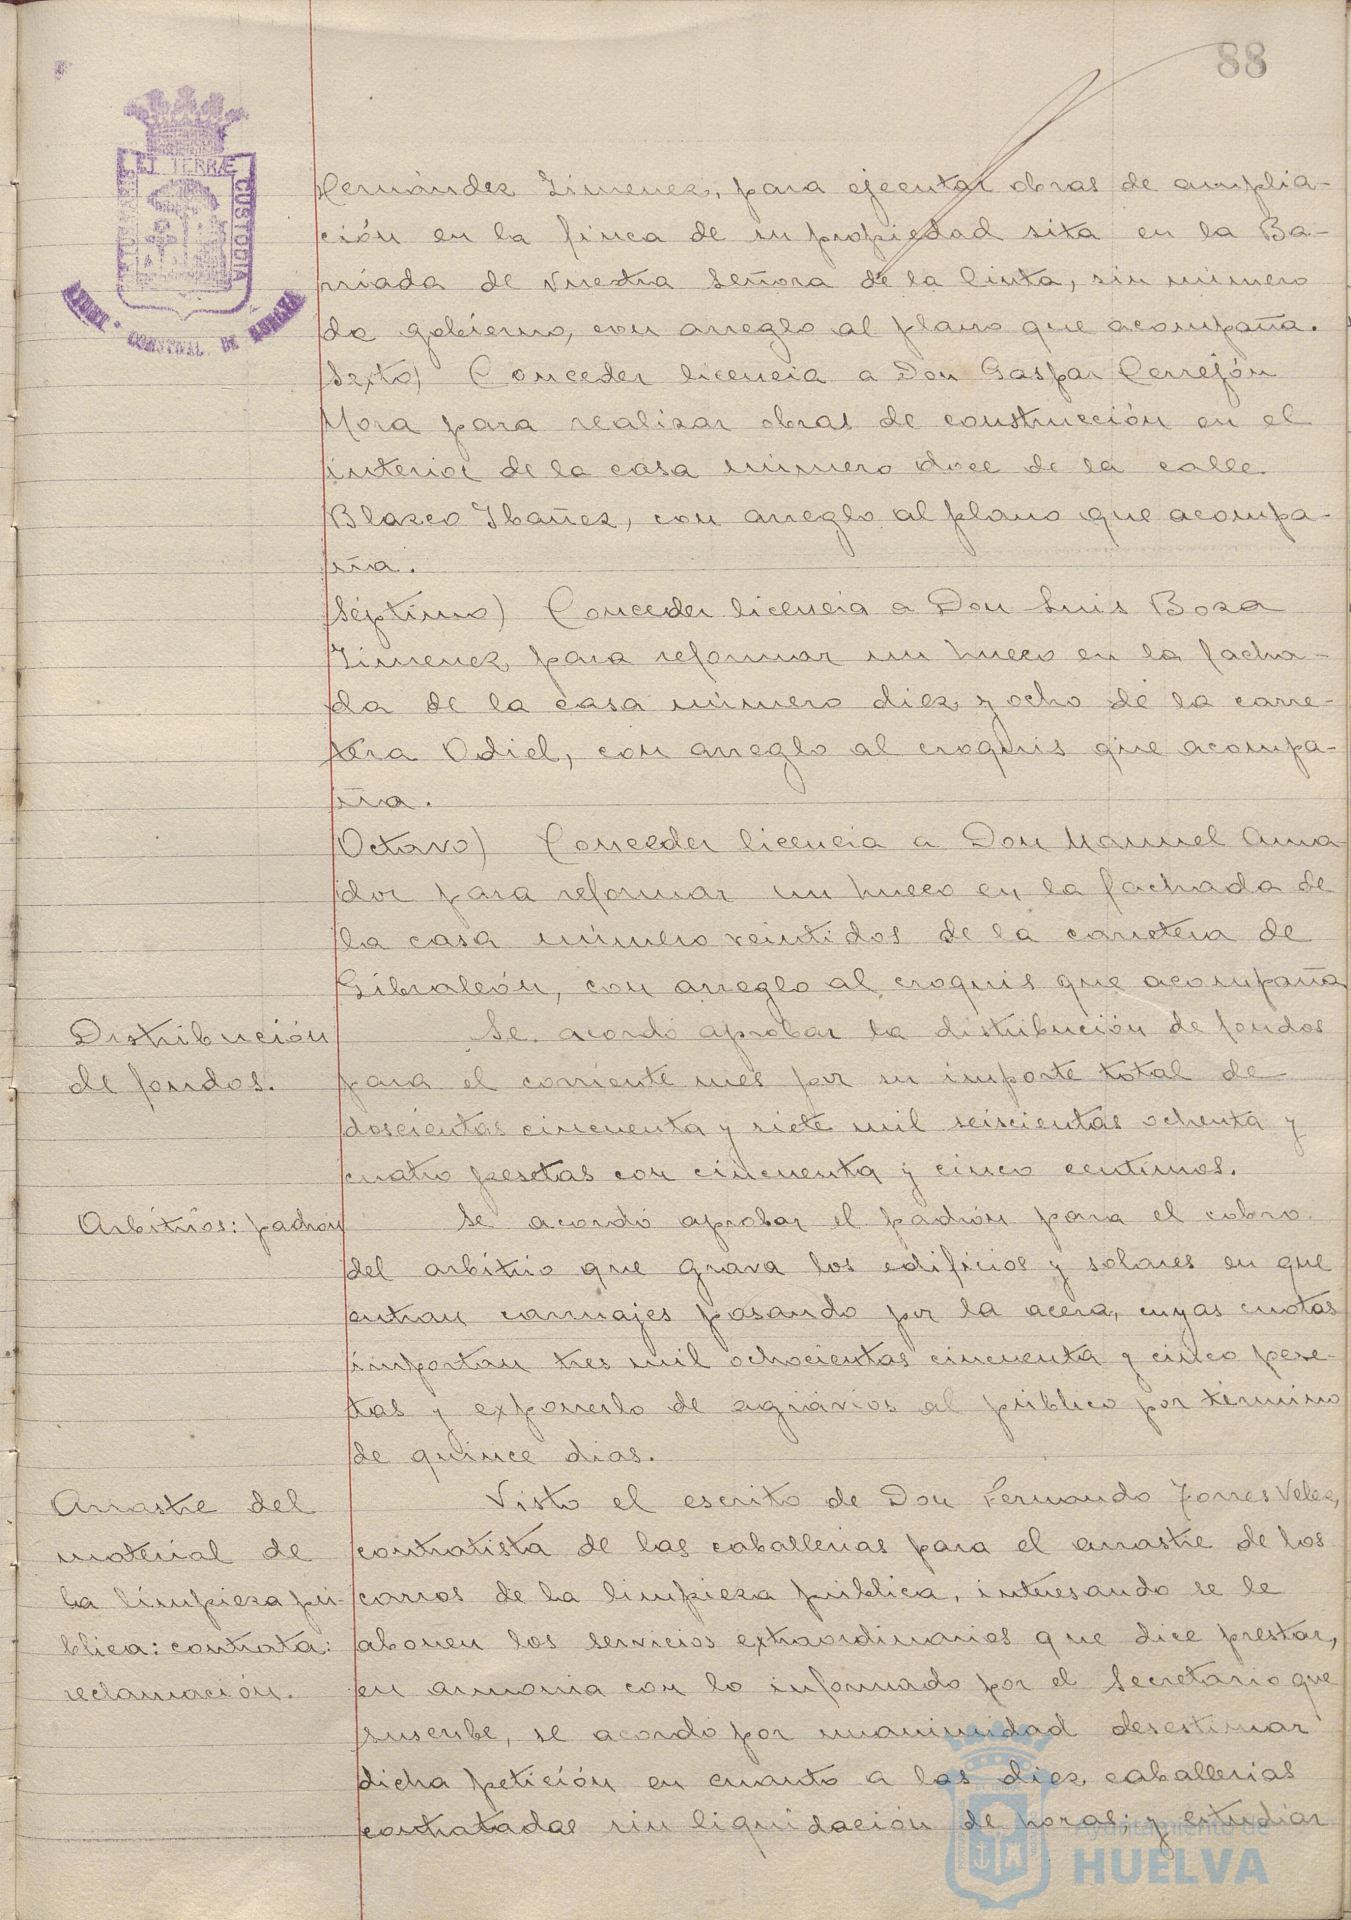 88
ET TERRÆ
CUSTODIA
AYUNT. CONSTNAL. DE HUELVA
Fernández Jimenez, para ejecutar obras de amplia-
ción en la finca de su propiedad sita en la Ba-
rriada de Nuestra Señora de la Cinta, sin número
de gobierno, con arreglo al plano que acompaña.
Sexto) Conceder licencia a Don Gaspar Cerrejón
Mora para realizar obras de construcción en el
interior de la casa número doce de la calle
Blazco Ibañez, con arreglo al plano que acompa-
ña.
Séptimo) Conceder licencia a Don Luis Boza
Jimenez para reformar un hueco en la facha-
da de la casa número diez y ocho de la carre-
tera Odiel, con arreglo al croquis que acompa-
ña.
Octavo) Conceder licencia a Don Manuel Ama-
dor para reformar un hueco en la fachada de
la casa número veintidos de la carretera de
Gibraleón, con arreglo al croquis que acompaña
Distribución
de fondos.
Se acordó aprobar la distribución de fondos
para el corriente mes por su importe total de
doscientas cincuenta y siete mil seiscientas ochenta y
cuatro pesetas con cincuenta y cinco centimos.
Arbitrios: padrón
Se acordó aprobar el padrón para el cobro
del arbitrio que grava los edificios y solares en que
entran carruajes pasando por la acera, cuyas cuotas
importan tres mil ochocientas cincuenta y cinco pese-
tas y exponerlo de agravios al público por término
de quince dias.
Arrastre del
material de
la limpieza pú-
blica: contrata:
reclamación.
Visto el escrito de Don Fernando Torres Velez,
contratista de las caballerias para el arrastre de los
carros de la limpieza pública, interesando se le
abonen los servicios extraordinarios que dice prestar,
en armonia con lo informado por el Secretario que
suscribe, se acordó por unanimidad desestimar
dicha petición en cuanto a las diez caballerias
contratadas sin liquidación de horas; y estudiar
Ayuntamiento de
HUELVA